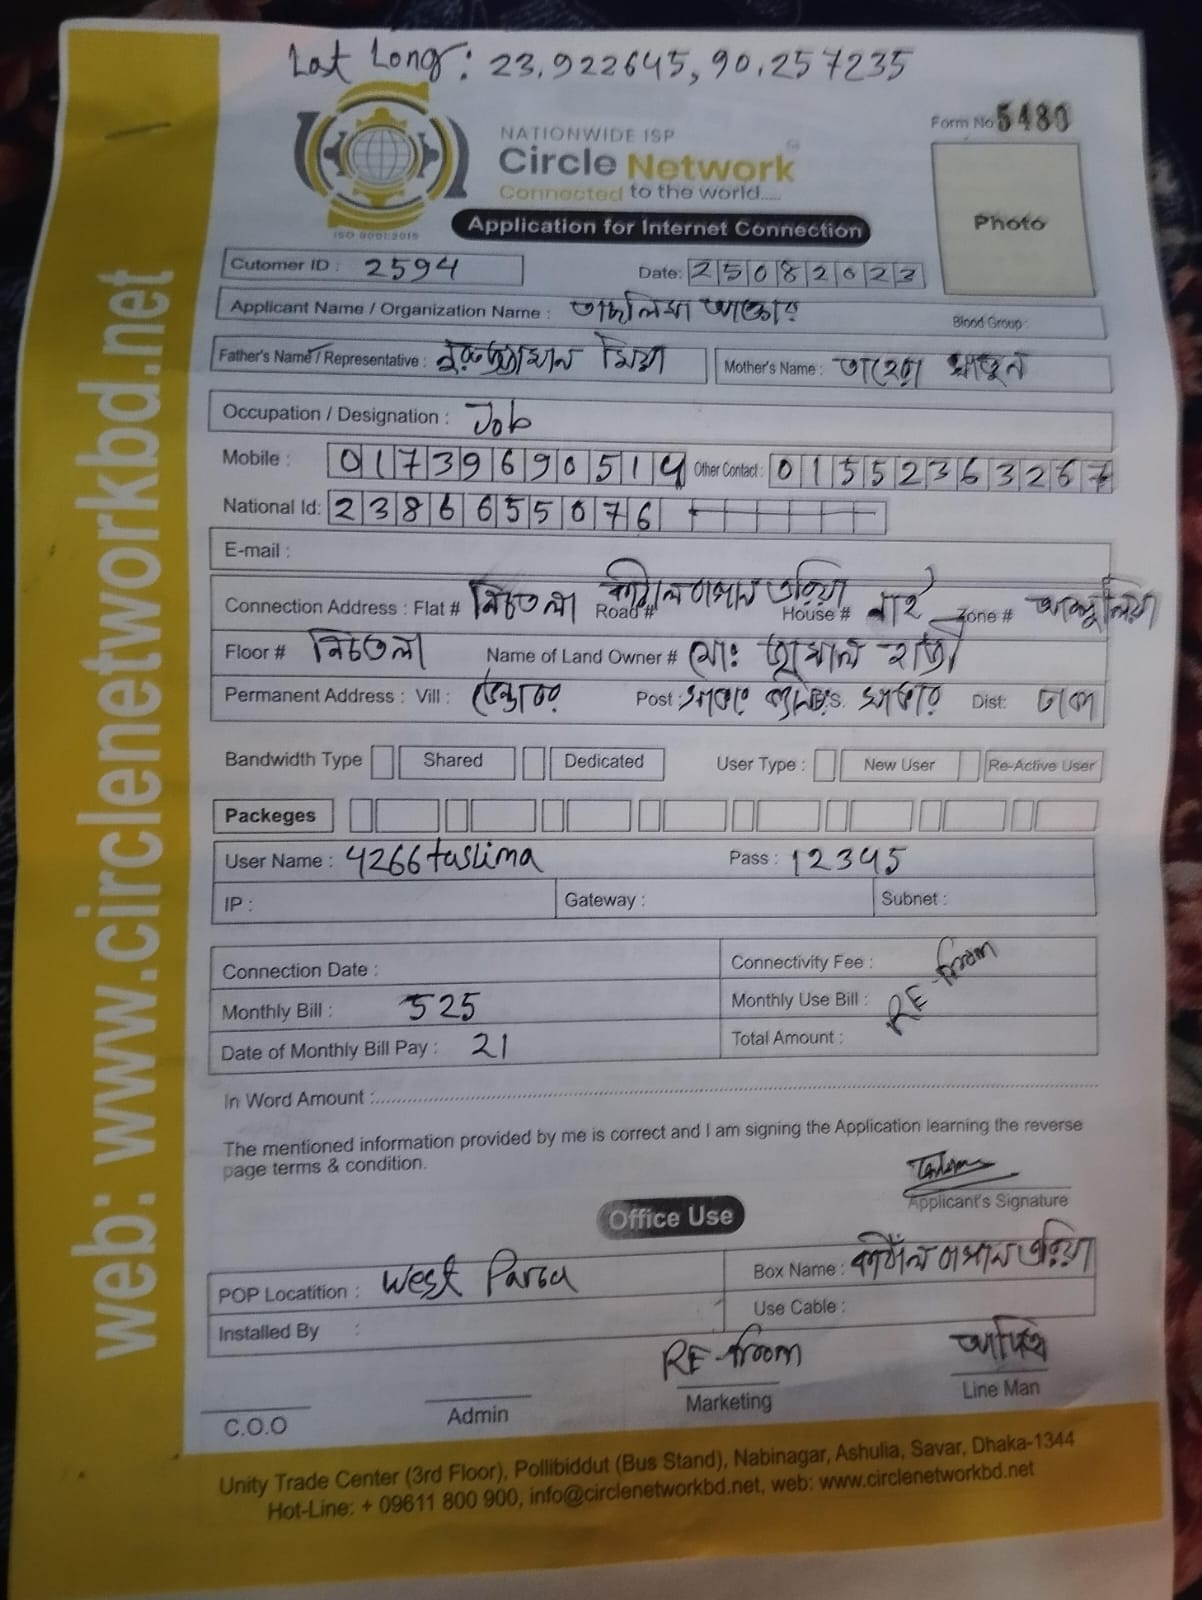 Lat Long: 23.922645, 90.257235
Form No 5480
NATIONWIDE ISP
Circle Network
Connected to the world.....
ISO 9001:2015
Application for Internet Connection
Photo
Cutomer ID : 2594 Date: 25082023
Applicant Name / Organization Name : তাছলিমা আক্তার Blood Group:
Father's Name / Representative : নুরুজ্জামান মিয়া Mother's Name : তাহেরা খাতুন
Occupation / Designation : Job
Mobile : 01739690514 Other Contact : 01552363267
National Id: 2386655076
E-mail :
Connection Address : Flat # নিচতলা Road # House # নাই Zone # আশুলিয়া
Floor # নিচতলা Name of Land Owner # মোঃ
Permanent Address : Vill : Post : P.S. সাভার Dist: ঢাকা
Bandwidth Type Shared Dedicated User Type : New User Re-Active User
Packeges
User Name : 4266taslima Pass : 12345
IP : Gateway : Subnet :
Connection Date : Connectivity Fee :
Monthly Bill : 525 Monthly Use Bill : RE-from
Date of Monthly Bill Pay : 21 Total Amount :
In Word Amount :
The mentioned information provided by me is correct and I am signing the Application learning the reverse
page terms & condition.
Applicant's Signature
Office Use
POP Locatition : West Parsa Box Name :
Installed By : Use Cable :
RE-from
C.O.O Admin Marketing Line Man
Unity Trade Center (3rd Floor), Pollibiddut (Bus Stand), Nabinagar, Ashulia, Savar, Dhaka-1344
Hot-Line: + 09611 800 900, info@circlenetworkbd.net, web: www.circlenetworkbd.net
web: www.circlenetworkbd.net